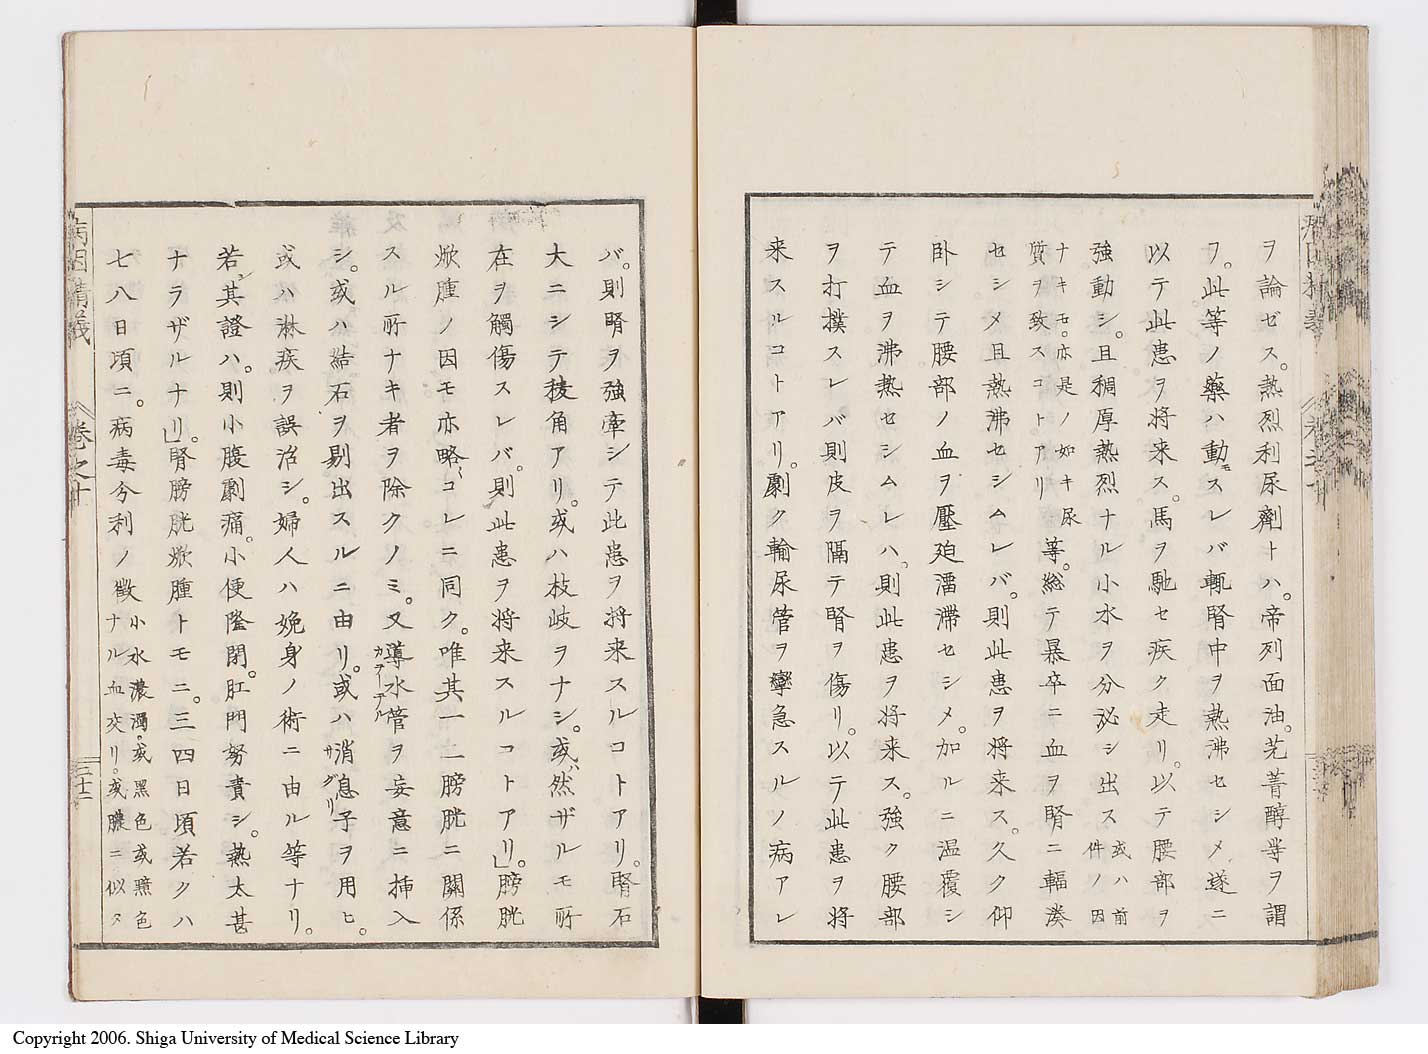 ヲ論ゼス。熱烈利尿劑トハ。帝列面油。芫菁醇等ヲ謂
フ。此等ノ藥ハ動モスレバ輙腎中ヲ熱沸セシメ遂ニ
以テ此患ヲ将来ス。馬ヲ馳セ疾ク走リ。以テ腰部ヲ
強動シ。且稠厚熱烈ナル小水ヲ分泌シ出ス或ハ前件ノ因
ナキモ。亦是ノ如キ尿質ヲ致スコトアリ等。総テ暴卒ニ血ヲ腎ニ輻湊
セシメ且熱沸セシムレバ。則此患ヲ将来ス。久ク仰
卧シテ腰部ノ血ヲ壓廹濇滞セシメ。加ルニ温覆シ
テ血ヲ沸熱セシムレハ、則此患ヲ将来ス。強ク腰部
ヲ打撲スレバ則皮ヲ隔テ腎ヲ傷リ。以テ此患ヲ将
来スルコトアリ。劇ク輸尿管ヲ攣急スルノ病アレ
バ。則腎ヲ強牽シテ此患ヲ将来スルコトアリ。腎石
大ニシテ稜角アリ。或ハ枝岐ヲナシ。或ハ然ザルモ所
在ヲ觸傷スレバ。則此患ヲ将来スルコトアリ」。膀胱
焮腫ノ因モ亦略コレニ同ク。唯其一二膀胱ニ關係
スル所ナキ者ヲ除クノミ。又導水管カテーテルヲ妄意ニ挿入
シ。或ハ結石ヲ剔出スルニ由リ。或ハ消息子サグリヲ用ヒ。
或ハ淋疾ヲ誤治シ。婦人ハ娩身ノ術ニ由ル等ナリ。
若シ其證ハ。則小腹劇痛。小便窿閉。肛門努責シ。熱太甚
ナラザルナリ」。腎膀胱焮腫トモニ。三四日頃若クハ
七八日頃ニ。病毒分利ノ徴小水濃濁。或黒色或𤍠色ナル血交リ。或膿ニ似タ
病因精義
卷之十
三十二